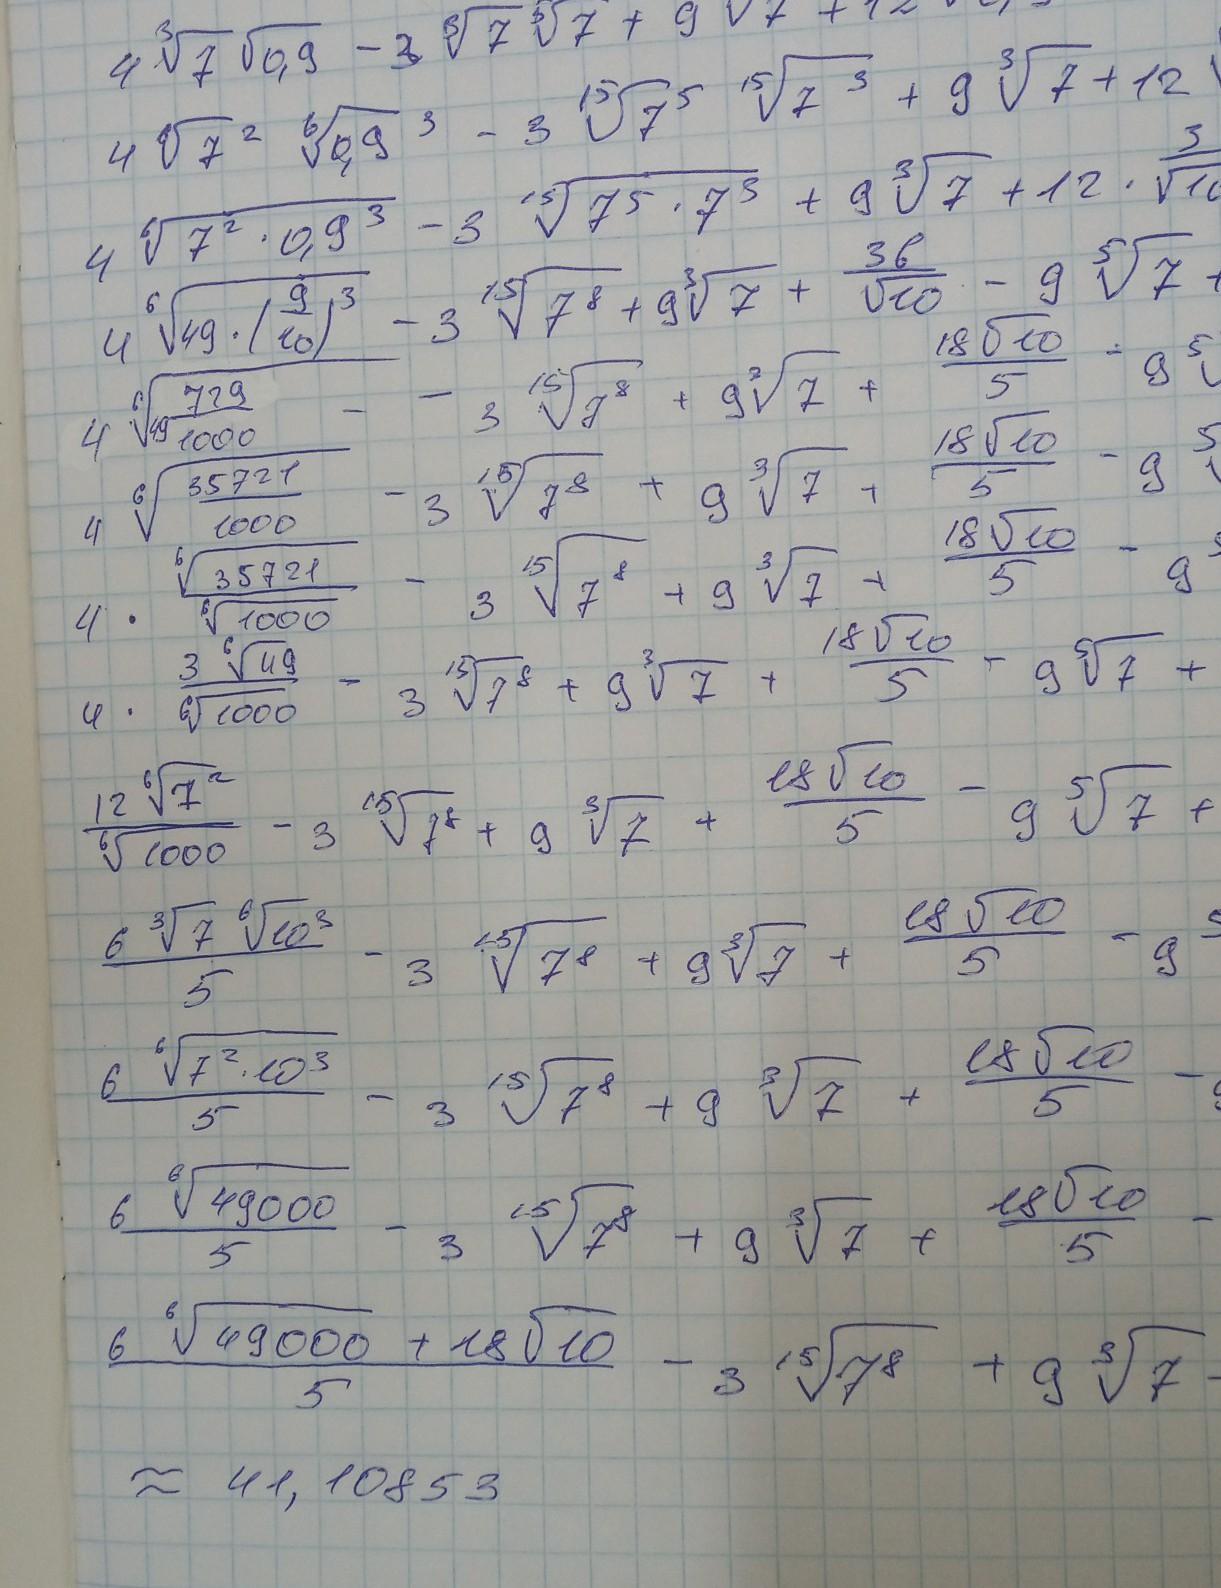 4 ∛7 √0,9 − 3 ∛7 ⁵√7 + 9 ∛7 + 12
4 ⁶√7² ⁶√0,9³ − 3 ¹⁵√7⁵ ¹⁵√7³ + 9 ∛7 + 12
4 ⁶√(7² · 0,9³) − 3 ¹⁵√(7⁵ · 7³) + 9 ∛7 + 12 · 3/√10
4 ⁶√(49 · (9/10)³) − 3 ¹⁵√7⁸ + 9 ∛7 + 36/√10 − 9 ⁵√7 +
4 ⁶√(49 729/1000) − − 3 ¹⁵√7⁸ + 9 ²√7 + 18√10/5 − 9 ⁵√
4 ⁶√(35721/1000) − 3 ¹⁵√7⁸ + 9 ∛7 + 18√10/5 − 9 ⁵√
4 · ⁶√35721/⁶√1000 − 3 ¹⁵√7⁸ + 9 ∛7 + 18√10/5 − 9
4 · 3 ⁶√49/⁶√1000 − 3 ¹⁵√7⁸ + 9 ∛7 + 18√10/5 − 9 ⁵√7 +
12 ⁶√7²/⁶√1000 − 3 ¹⁵√7⁸ + 9 ∛7 + 18√10/5 − 9 ⁵√7 +
6 ∛7 ⁶√10³/5 − 3 ¹⁵√7⁸ + 9 ∛7 + 18√10/5 − 9
6 ⁶√(7² · 10³)/5 − 3 ¹⁵√7⁸ + 9 ∛7 + 18√10/5 −
6 ⁶√49000/5 − 3 ¹⁵√7⁸ + 9 ∛7 + 18√10/5 −
(6 ⁶√49000 + 18√10)/5 − 3 ¹⁵√7⁸ + 9 ∛7 −
≈ 41,10853